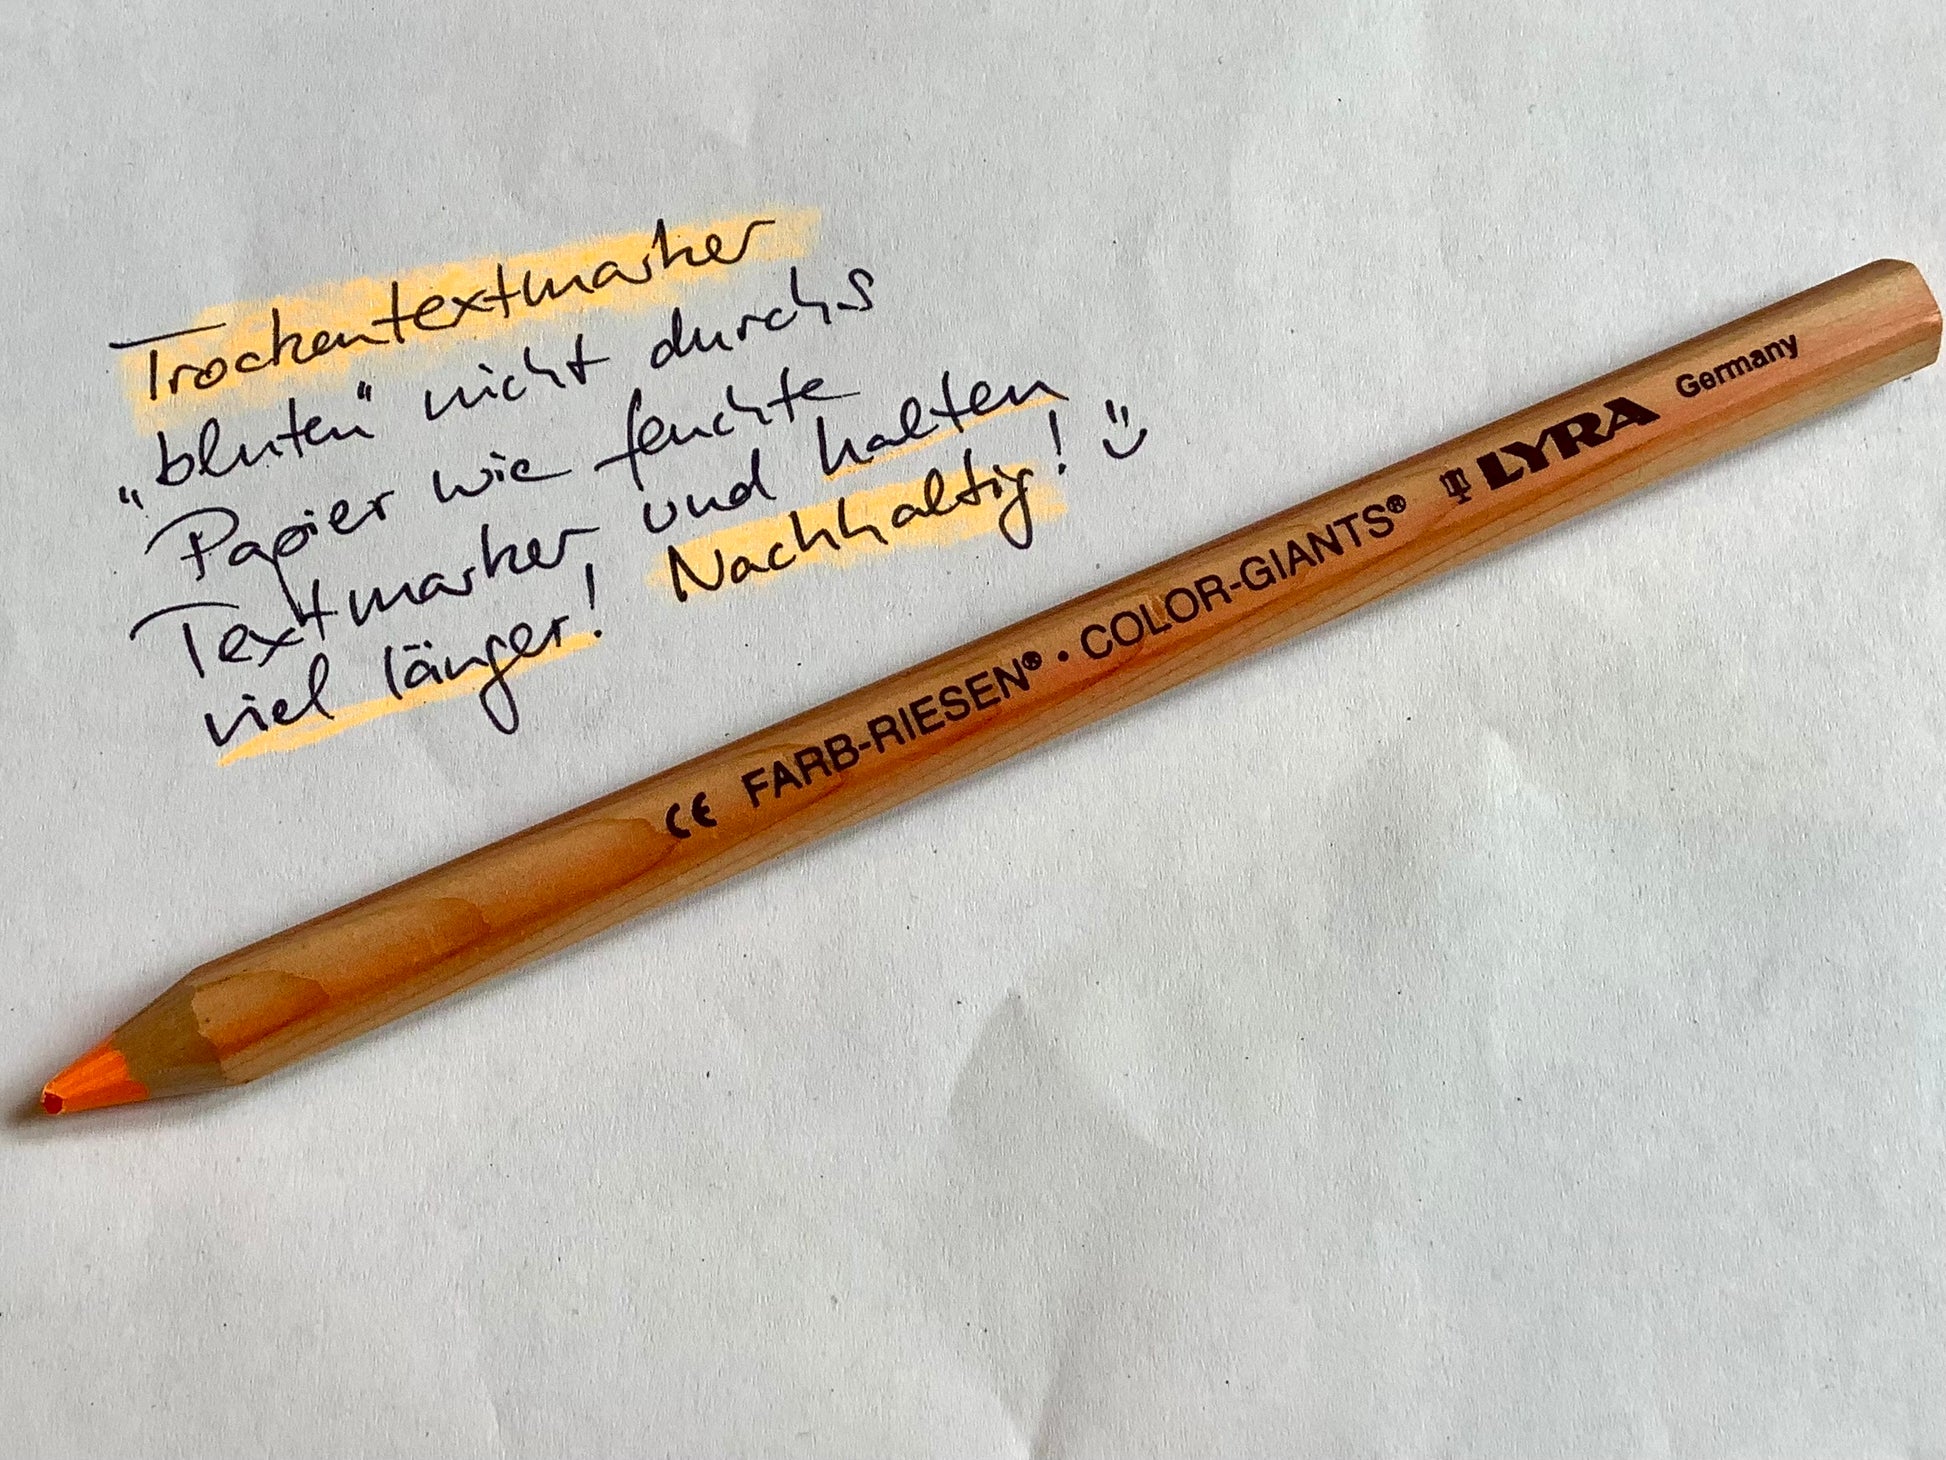 Trockentextmarker
„bluten“ nicht durchs
Papier wie feuchte
Textmarker und halten
viel länger! Nachhaltig!
CE FARB-RIESEN® · COLOR-GIANTS® LYRA Germany